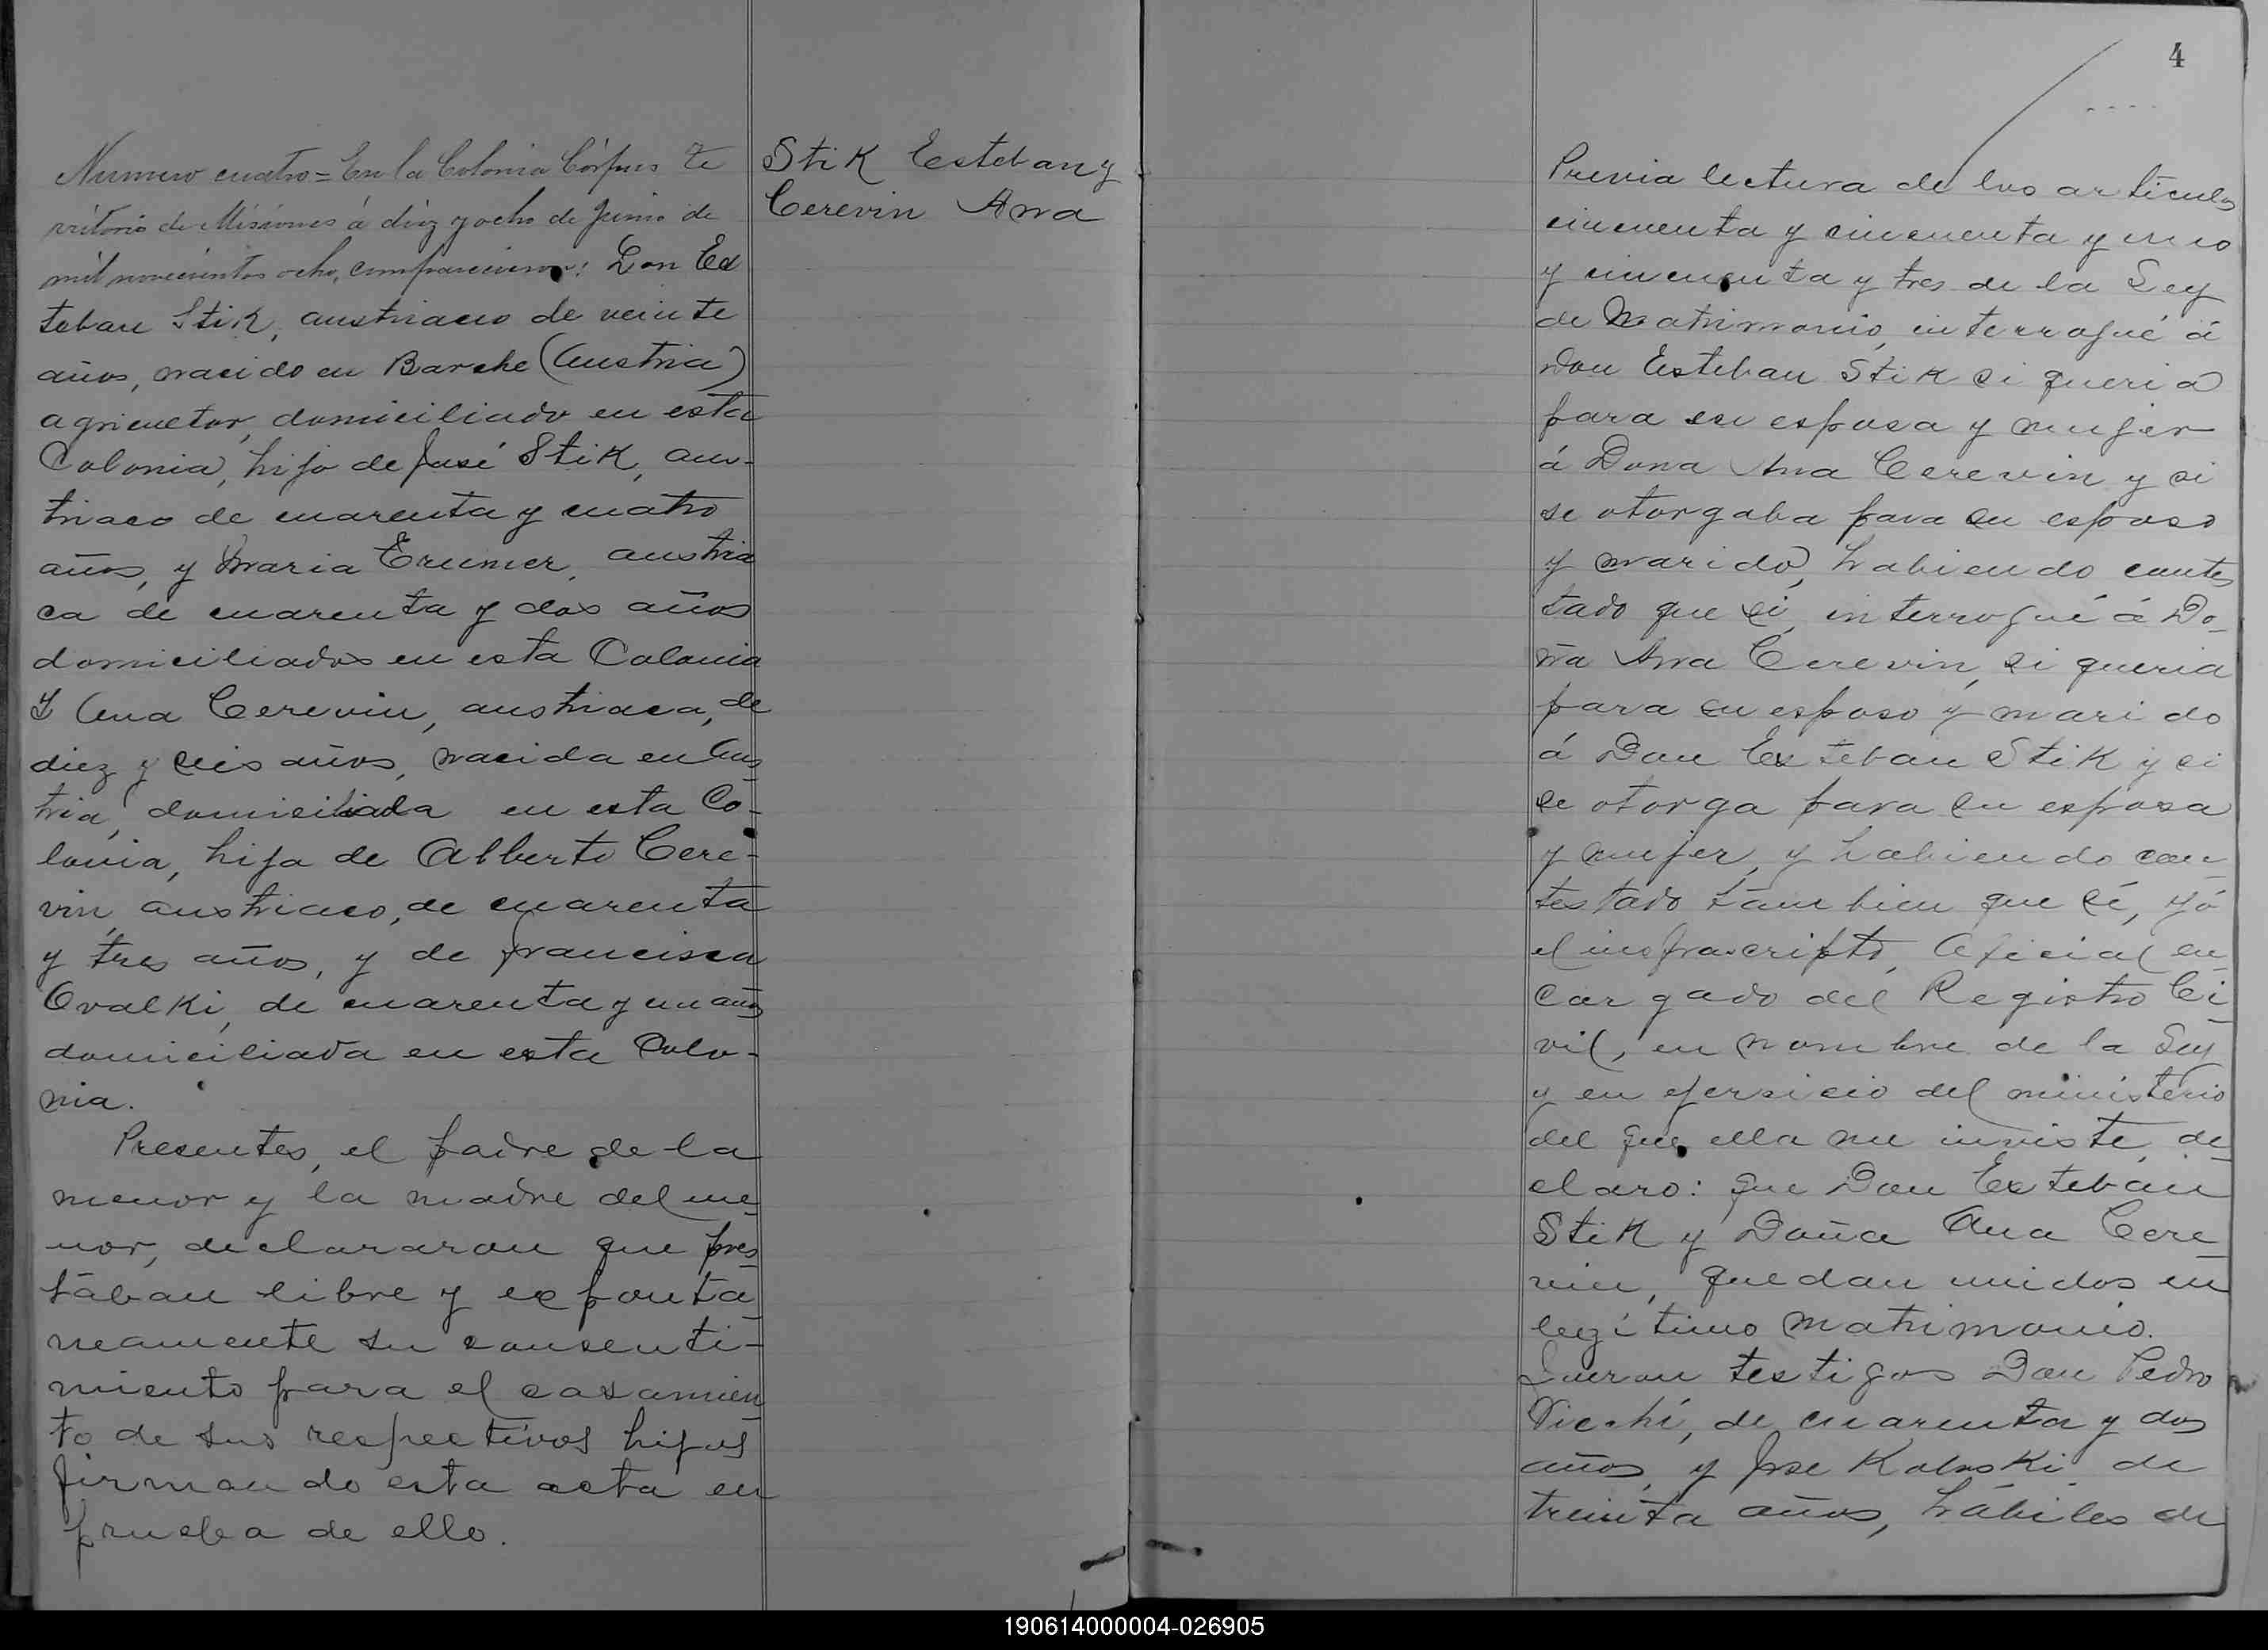 Numero cuatro = En la Colonia Córpus te
rritorio de Misiones á diez y ocho de Junio de
mil novecientos ocho, comparecieron: Don Es
teban Stik, austriaco de veinte
años, nacido en Barche (Austria)
agricultor, domiciliado en esta
Colonia, hijo de José Stik, aus-
triaco de cuarenta y cuatro
años, y Maria Erumer, austria
ca de cuarenta y dos años
domiciliados en esta Colonia
Y Ana Cerevin, austriaca, de
diez y seis años, nacida en Aus
tria, domiciliada en esta Co-
lonia, hija de Alberto Cere-
vin, austriaco, de cuarenta
y tres años, y de Francisca
Ovalki, de cuarenta y un años
domiciliada en esta Colo-
nia.
Presentes, el padre de la
menor y la madre del me-
nor, declararon que pres
tában libre y espontá-
neamente su consenti-
miento para el casamien
to de sus respectivos hijos
firmando esta acta en
prueba de ello.
Stik Esteban y
Cerevin Ana
4
Previa lectura de los artículos
cincuenta y cincuenta y uno
y cincuenta y tres de la Ley
de Matrimonio, interrogué á
Don Esteban Stik si queria
para su esposa y mujer
á Dona Ana Cerevin y si
se otorgaba para su esposo
y marido, habiendo contes
tado que sí, interrogué á Do-
ña Ana Cerevin, si queria
para su esposo y marido
á Don Esteban Stik y si
se otorga para su esposa
y mujer, y habiendo con-
testado támbien que sí, yó
el infrascripto, Oficial en-
cargado del Registro Ci-
vil, en nombre de la Ley
y en ejersicio del ministerio
del que ella me inviste, de-
claro: que Don Esteban
Stik y Doña Ana Cere-
vin, quedan unidos en
legítimo matrimonio.
Fueron testigos Don Pedro
Vicchi, de cuarenta y dos
años, y Jose Koloski de
treinta años, hábiles de
190614000004-026905